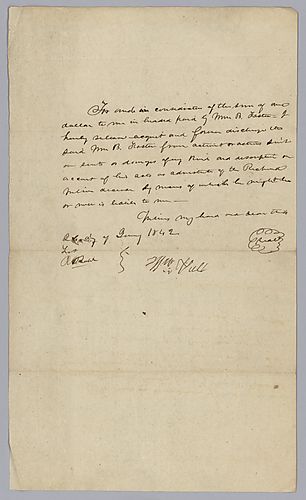 For and in consideration of the sum of one
dollar to me in handed paid by Wm B. Foster I
hereby release acquit and forever discharge the
said Wm B. Foster from actions or actions suit
or suits or damages of any kind and description on
account of his acts as of the Richard
deceased by means of which he might be
or was is liable to me
Witness my hand and seal this
day of Jany 1842
Test
Wm Hill
Seal